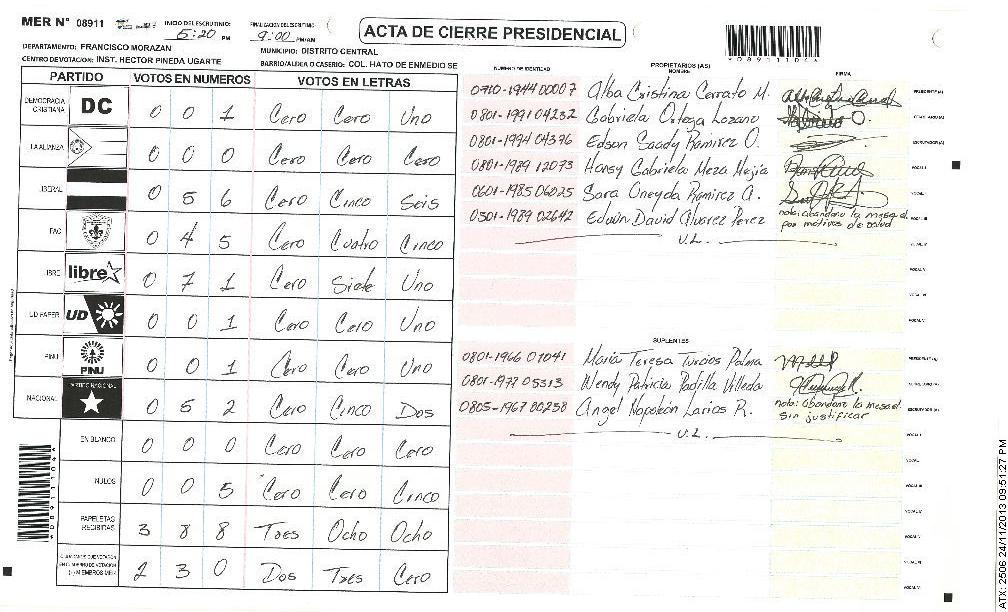 MER N° 08911
INICIO DEL ESCRUTINIO:
5:20 PM
FINALIZACION DEL ESCRUTINIO:
9:00 PM/AM
ACTA DE CIERRE PRESIDENCIAL
*08911104*
DEPARTAMENTO: FRANCISCO MORAZAN
MUNICIPIO: DISTRITO CENTRAL
CENTRO DE VOTACION: INST. HECTOR PINEDA UGARTE
BARRIO/ALDEA O CASERIO: COL. HATO DE ENMEDIO SE
PARTIDO VOTOS EN NUMEROS VOTOS EN LETRAS
DEMOCRACIA CRISTIANA DC 0 0 1 Cero Cero Uno
LA ALIANZA 0 0 0 Cero Cero Cero
LIBERAL 0 5 6 Cero Cinco Seis
PAC 0 4 5 Cero Cuatro Cinco
LIBRE libre 0 7 1 Cero Siete Uno
UD FAPER UD 0 0 1 Cero Cero Uno
PINU PINU 0 0 1 Cero Cero Uno
NACIONAL PARTIDO NACIONAL 0 5 2 Cero Cinco Dos
EN BLANCO 0 0 0 Cero Cero Cero
NULOS 0 0 5 Cero Cero Cinco
PAPELETAS RECIBIDAS 3 8 8 Tres Ocho Ocho
CIUDADANOS QUE VOTARON EN CUADERNO DE VOTACION (+) MIEMBROS MER 2 3 0 Dos Tres Cero
NUMERO DE IDENTIDAD PROPIETARIOS (AS) NOMBRE FIRMA
0710-1944 00007 Alba Cristina Cerrato M. PRESIDENTE(A)
0801-1991 04232 Gabriela Ortega Lozano SECRETARIO(A)
0801-1994 04396 Edson Saady Ramirez O. ESCRUTADOR(A)
0801-1989 12073 Hansy Gabriela Meza Mejia VOCAL I
0601-1985 06025 Sara Oneyda Ramirez A. VOCAL II
0301-1989 02642 Edwin David Alvarez Perez nota: abandono la mesa el VOCAL III
por motivos de salud
U.L. VOCAL IV
VOCAL V
VOCAL VI
SUPLENTES
0801-1966 01041 Maria Teresa Turcios Palma PRESIDENTE(A)
0801-1977 05313 Wendy Patricia Padilla Villeda SECRETARIO(A)
0805-1967 00238 Angel Napoleón Larios R. nota: abandono la mesa el ESCRUTADOR(A)
sin justificar
U.L. VOCAL I
VOCAL II
VOCAL III
VOCAL IV
VOCAL V
VOCAL VI
*08911104*
ATX: 2506 24/11/2013 09:51:27 PM